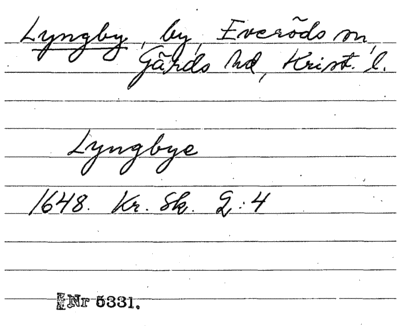 Lyngby, by, Everöds sn,
Gärds hd, Krist. l.
Lyngbye
1648. Kr. Sk. Q:4
Nr 5331.